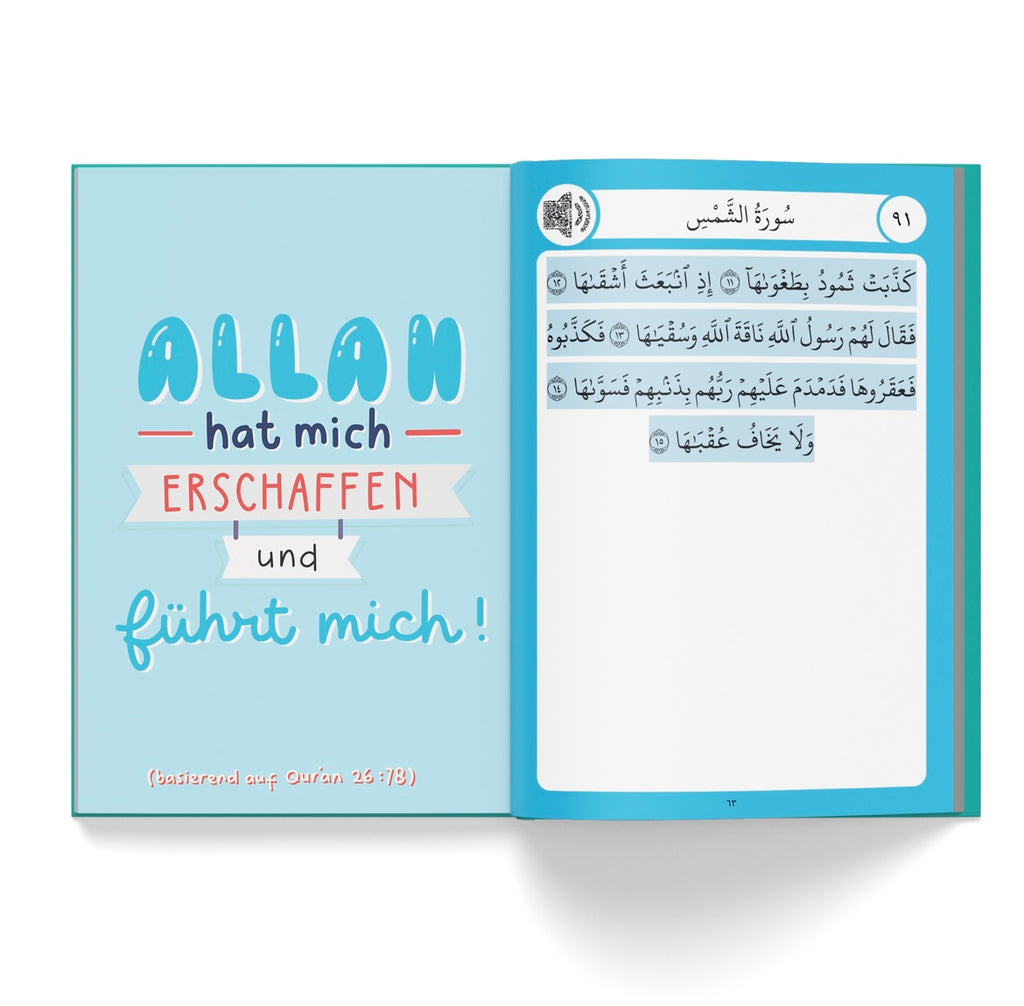 ALLAH
hat mich
ERSCHAFFEN
und
führt mich!
(basierend auf Qur'an 26:78)
سُورَةُ الشَّمْسِ
٩١
كَذَّبَتْ ثَمُودُ بِطَغْوَىٰهَآ ١١ إِذِ ٱنۢبَعَثَ أَشْقَىٰهَا ١٢
فَقَالَ لَهُمْ رَسُولُ ٱللَّهِ نَاقَةَ ٱللَّهِ وَسُقْيَـٰهَا ١٣ فَكَذَّبُوهُ
فَعَقَرُوهَا فَدَمْدَمَ عَلَيْهِمْ رَبُّهُم بِذَنۢبِهِمْ فَسَوَّىٰهَا ١٤
وَلَا يَخَافُ عُقْبَـٰهَا ١٥
٦٣